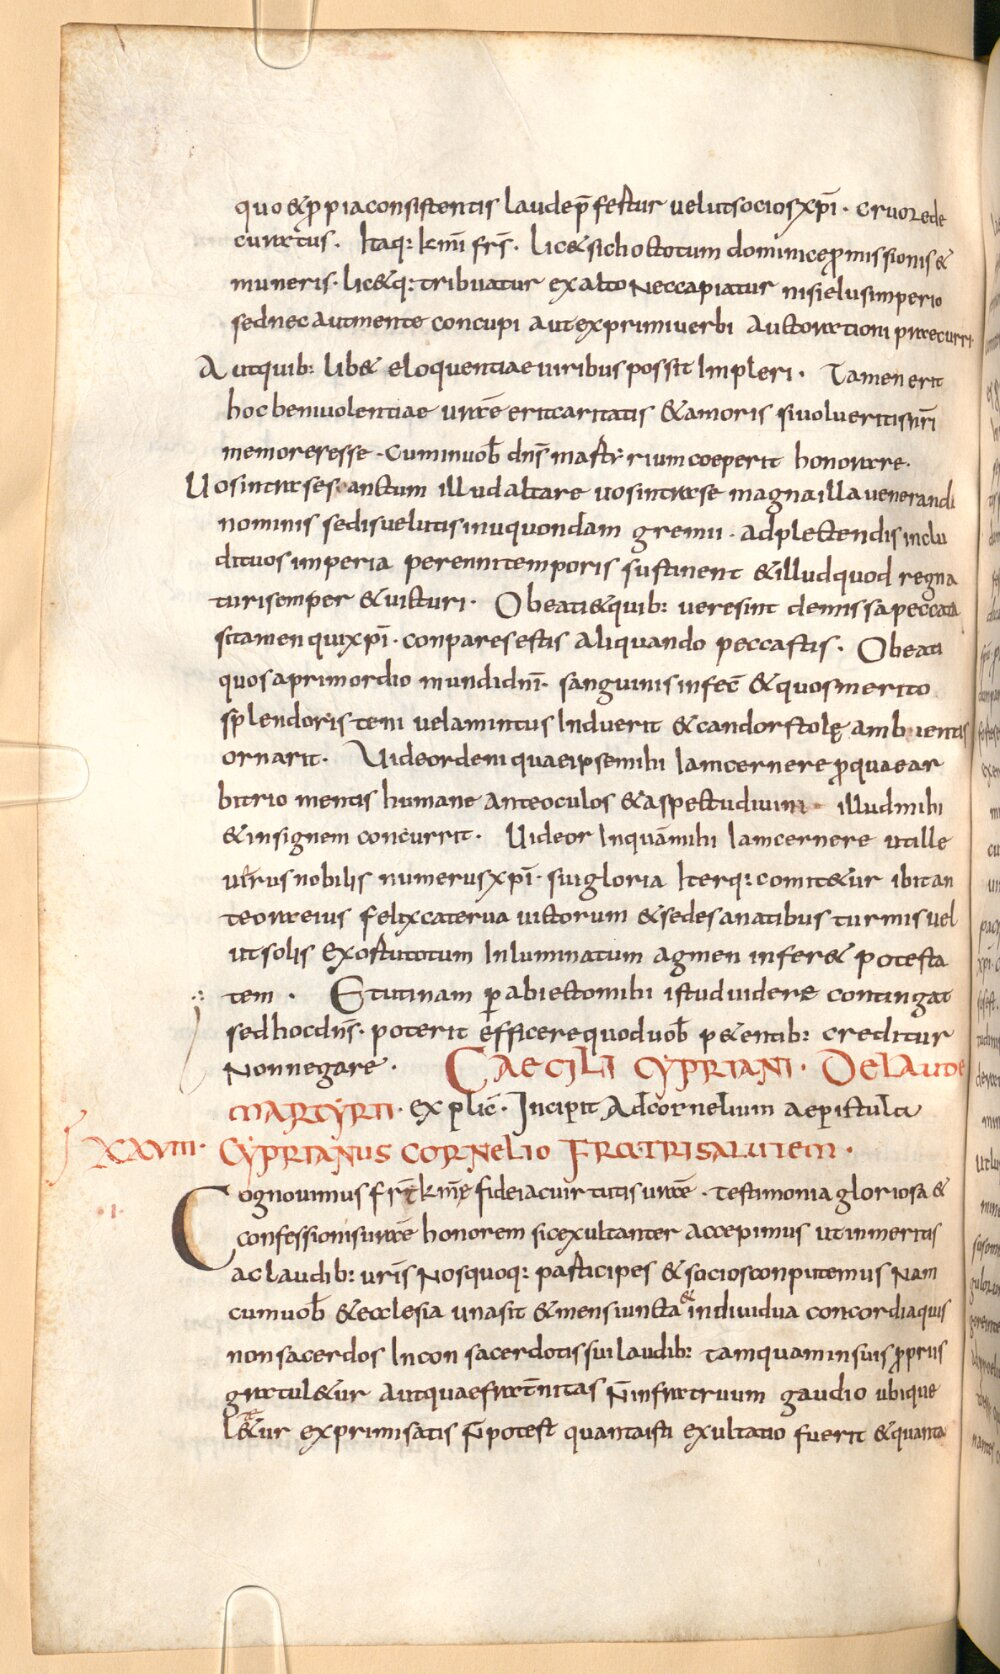 quo & ꝓpia consistentis laude p̄festur velut socios xpī · cruore de
curratus · Itaq: kmī frs̄ · lic& sic hoc totum dominice ꝓmissionis &
muneris · lic&q: tribuatur ex alto nec capiatur nisi eius imperio
sed nec aut mente concupi aut exprimi verbi auctorationi praecurri
Aut quib: lib& eloquentiae viribus possit impleri · Tamen erit
hoc benivolentiae vrāe erit caritatis & amoris si volueritis nr̄i
memores esse · cum in vob̄ dns̄ martyrium coeperit honorare ·
Vos intra se sanctum illud altare vos intra se magna illa venerandi
nominis sedis velut is in vquondam gremii · adplectendis inclu
dit vos imperia perenni temporis sustinent & illud quod regna
turi semper & victuri · O beati & quib: vere sint demissa peccata
si tamen qui xpī · conpares estis aliquando peccastis · O beati
quos a primordio mundi dnī · sanguinis infec̄ & quos merito
splendoris teni velamintus induerit & candor stolę ambientis
ornarit · Videor deni quae ipse mihi iam cernere ꝓ quae ar
bitrio mentis humane ante oculos & aspectu divini illud mihi
& insignem concurrit · Videor inquā mihi iam cernere ut ille
vir̄us nobilis numerus xpī · sui gloria Iterq: comit&ur ibit an
te ora eius felix caterva victorum & sedes anatibus turmis vel
ut solis exostu totum inluminatum agmen infer& potesta
tem · Et utinam ꝑabiecto mihi istud videre contingat
sed hoc dns̄ · poterit efficere quod vob̄ p&entib: creditur
Non negare · CAECILI CYPRIANI · DE LAUDE
MARTYRII · explic̄ · Incipit Ad cornelium aepistula
XXVIII · CYPRIANUS CORNELIO FRATRI SALUTEM ·
Cognovimus fr̄t kmę fidei ac virtutis vrāe · testimonia gloriosa &
confessionis vrāe honorem sic exultanter accepimus ut in meritis
ac laudib: vrīs nos quoq: participes & socios conputemus Nam
cum vob̄ & ecclesia una sit & mens iuncta & individua concordia quis
non sacerdos in con sacerdotis sui laudib: tamquam in suis ꝓpriis
gratul&ur aut quae frat̄nitas n̄ in fratruum gaudio ubique
l&ur exprimi satis n̄ potest quanta isti exultatio fuerit & quanta